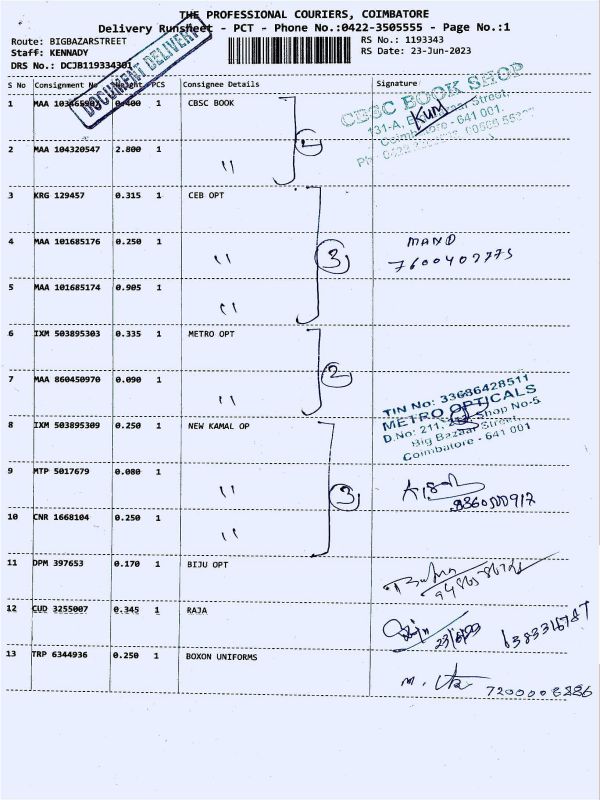 THE PROFESSIONAL COURIERS, COIMBATORE
Delivery Runsheet - PCT - Phone No.:0422-3505555 - Page No.:1
Route: BIGBAZARSTREET
RS No.: 1193343
Staff: KENNADY
RS Date: 23-Jun-2023
DRS No.: DCJB119334301
DOCUMENT DELIVERY
S No Consignment No Weight PCS Consignee Details Signature
1 MAA 0.400 1 CBSC BOOK
CBSC BOOK SHOP
131-A, Street,
Coimbatore - 641 001.
2 MAA 104320547 2.800 1 "
2
3 KRG 129457 0.315 1 CEB OPT
4 MAA 101685176 0.250 1 "
3
5 MAA 101685174 0.905 1 "
6 IXM 503895303 0.335 1 METRO OPT
7 MAA 860450970 0.090 1 "
2
TIN No: 33686428511
METRO OPTICALS
D.No: 211, Shop No-5
Big Bazaar Street,
Coimbatore - 641 001
8 IXM 503895309 0.250 1 NEW KAMAL OP
9 MTP 5017679 0.080 1 "
3
10 CNR 1668104 0.250 1 "
11 DPM 397653 0.170 1 BIJU OPT
12 CUD 3255007 0.345 1 RAJA
13 TRP 6344936 0.250 1 BOXON UNIFORMS